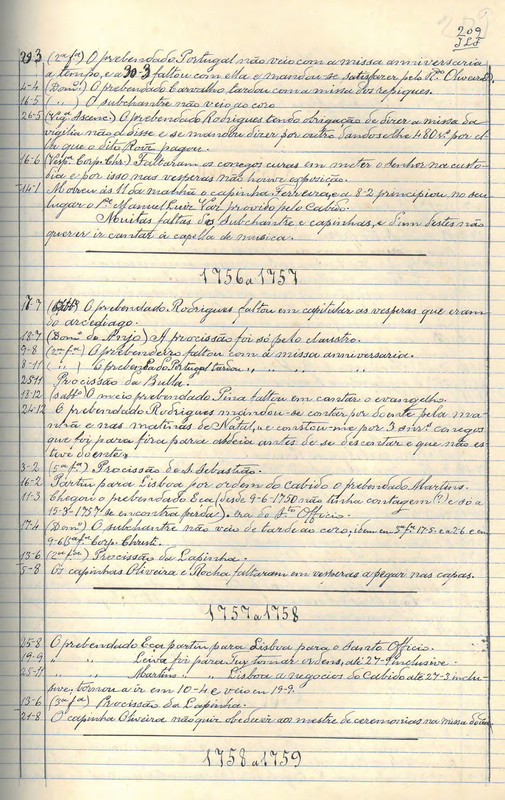 209
29-3 (2ª fª) O prebendado Portugal não veio com a missa anniversaria
a tempo, e a 30-3 faltou com ella e mandou-se satisfazer pelo Rdo Oliveira.
4-4 (Domº) O prebendado Carvalho tardou com a missa dos repiques.
16-5 ( " ) O subchantre não veio ao coro
26-5 (Vigª Ascenc.) O prebendado Rodrigues tendo obrigação de dizer a missa da
vigilia não a disse e se mandou dizer por outro dandose lhe 480 rs. por el-
la que o dito Rodr. pagou.
16-6 (Vespª Corp. Chr.) Faltaram os conegos curas em meter o Senhor na custo-
dia e por isso nas vesperas não houve exposição.
14-1 Morreu ás 11 da manhã o capinha Ferreira, e a 8-2 principiou no seu
lugar o Pe Manuel Luiz Vaz provido pelo Cabido.
Muitas faltas do subchantre e capinhas, e d'um destes não
querer ir cantar á capella de musica.
1756 a 1757
7-7 O prebendado Rodrigues faltou em capitular as vesperas que eram
do arcediago.
18-7 (Domº do Anjo) A procissão foi só pelo claustro.
9-8 (2ª fª) O prebendeiro faltou com a missa anniversaria.
8-11 ( " " ) O prebendado Portugal tardou " " " "
25-11 Procissão da Bulla.
13-12 (sabbº) O meio prebendado Pina faltou em cantar o evangelho.
24-12 O prebendado Rodrigues mandou-se contar por doente pela ma-
nhã e nas matinas de Natal, e constou-me por 3 snrs. conegos
que foi para fóra para a aldeia antes de se descontar e que não es-
tivé doente.
3-2 (5ª fª) Procissão de S. Sebastião.
16-2 Partiu para Lisboa por ordem do cabido o prebendado Martins.
11-3 Chegou o prebendado Eça (desde 9-6-1750 não tinha contagem (?) e só a
15-3-1757 se encontra perda), era do Sto Officio.
17-4 (Domº) O subchantre não veio de tarde ao coro, idem em 5ª fª 17-5 e a 2-6 e em
9-6 5ª fª Corp. Christi.
13-6 (2ª fª) Procissão da Lapinha.
5-8 Os capinhas Oliveira e Rocha faltaram em vesperas a pegar nas capas.
1757 a 1758
25-8 O prebendado Eça partiu para Lisboa para o Santo Officio.
19-9 " " Leiva foi para Tuy tomar ordens, até 27-9 inclusive.
25-11 " " Martins " " Lisboa a negocios do Cabido até 27-3 inclu-
sive; tornou a ir em 10-4 e veio em 19-9.
13-6 (3ª fª) Procissão da Lapinha.
21-8 O capinha Oliveira não quiz obedecer ao mestre de ceremonias na missa do dia.
1758 a 1759